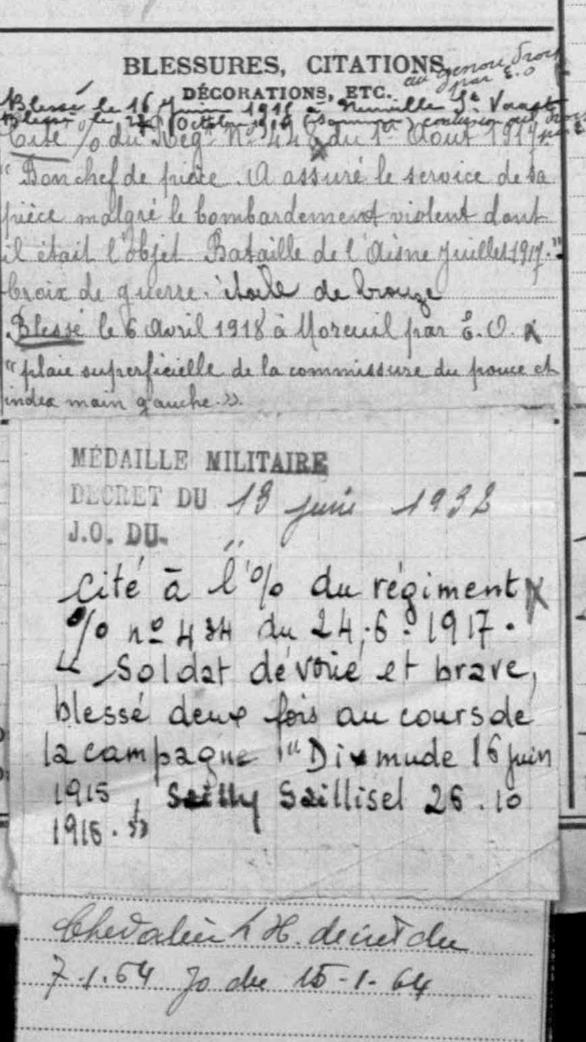 BLESSURES, CITATIONS,
au genou droit
par E.O
DÉCORATIONS, ETC.
Blessé le 16 Juin 1915 à Neuville St Vaast
Blessé le Octobre (Somme) contusion
Cité % du Régt No 448 du 1er Août 1917
"Bon chef de pièce. A assuré le service de sa
pièce malgré le bombardement violent dont
il était l'objet Bataille de l'Aisne Juillet 1917."
Croix de guerre. étoile de bronze
Blessé le 6 Avril 1918 à Moreuil par E.O.
"plaie superficielle de la commissure du pouce et
index main gauche."
MÉDAILLE MILITAIRE
DECRET DU 13 juin 1932
J.O. DU "
Cité à l'% du régiment
% no 434 du 24.6.1917.
"Soldat dévoué et brave,
blessé deux fois au cours de
la campagne "Dixmude 16 juin
1915, Saillisel 26.10
1916."
Chevalier L H. décret du
7.1.64 Jo du 15-1-64